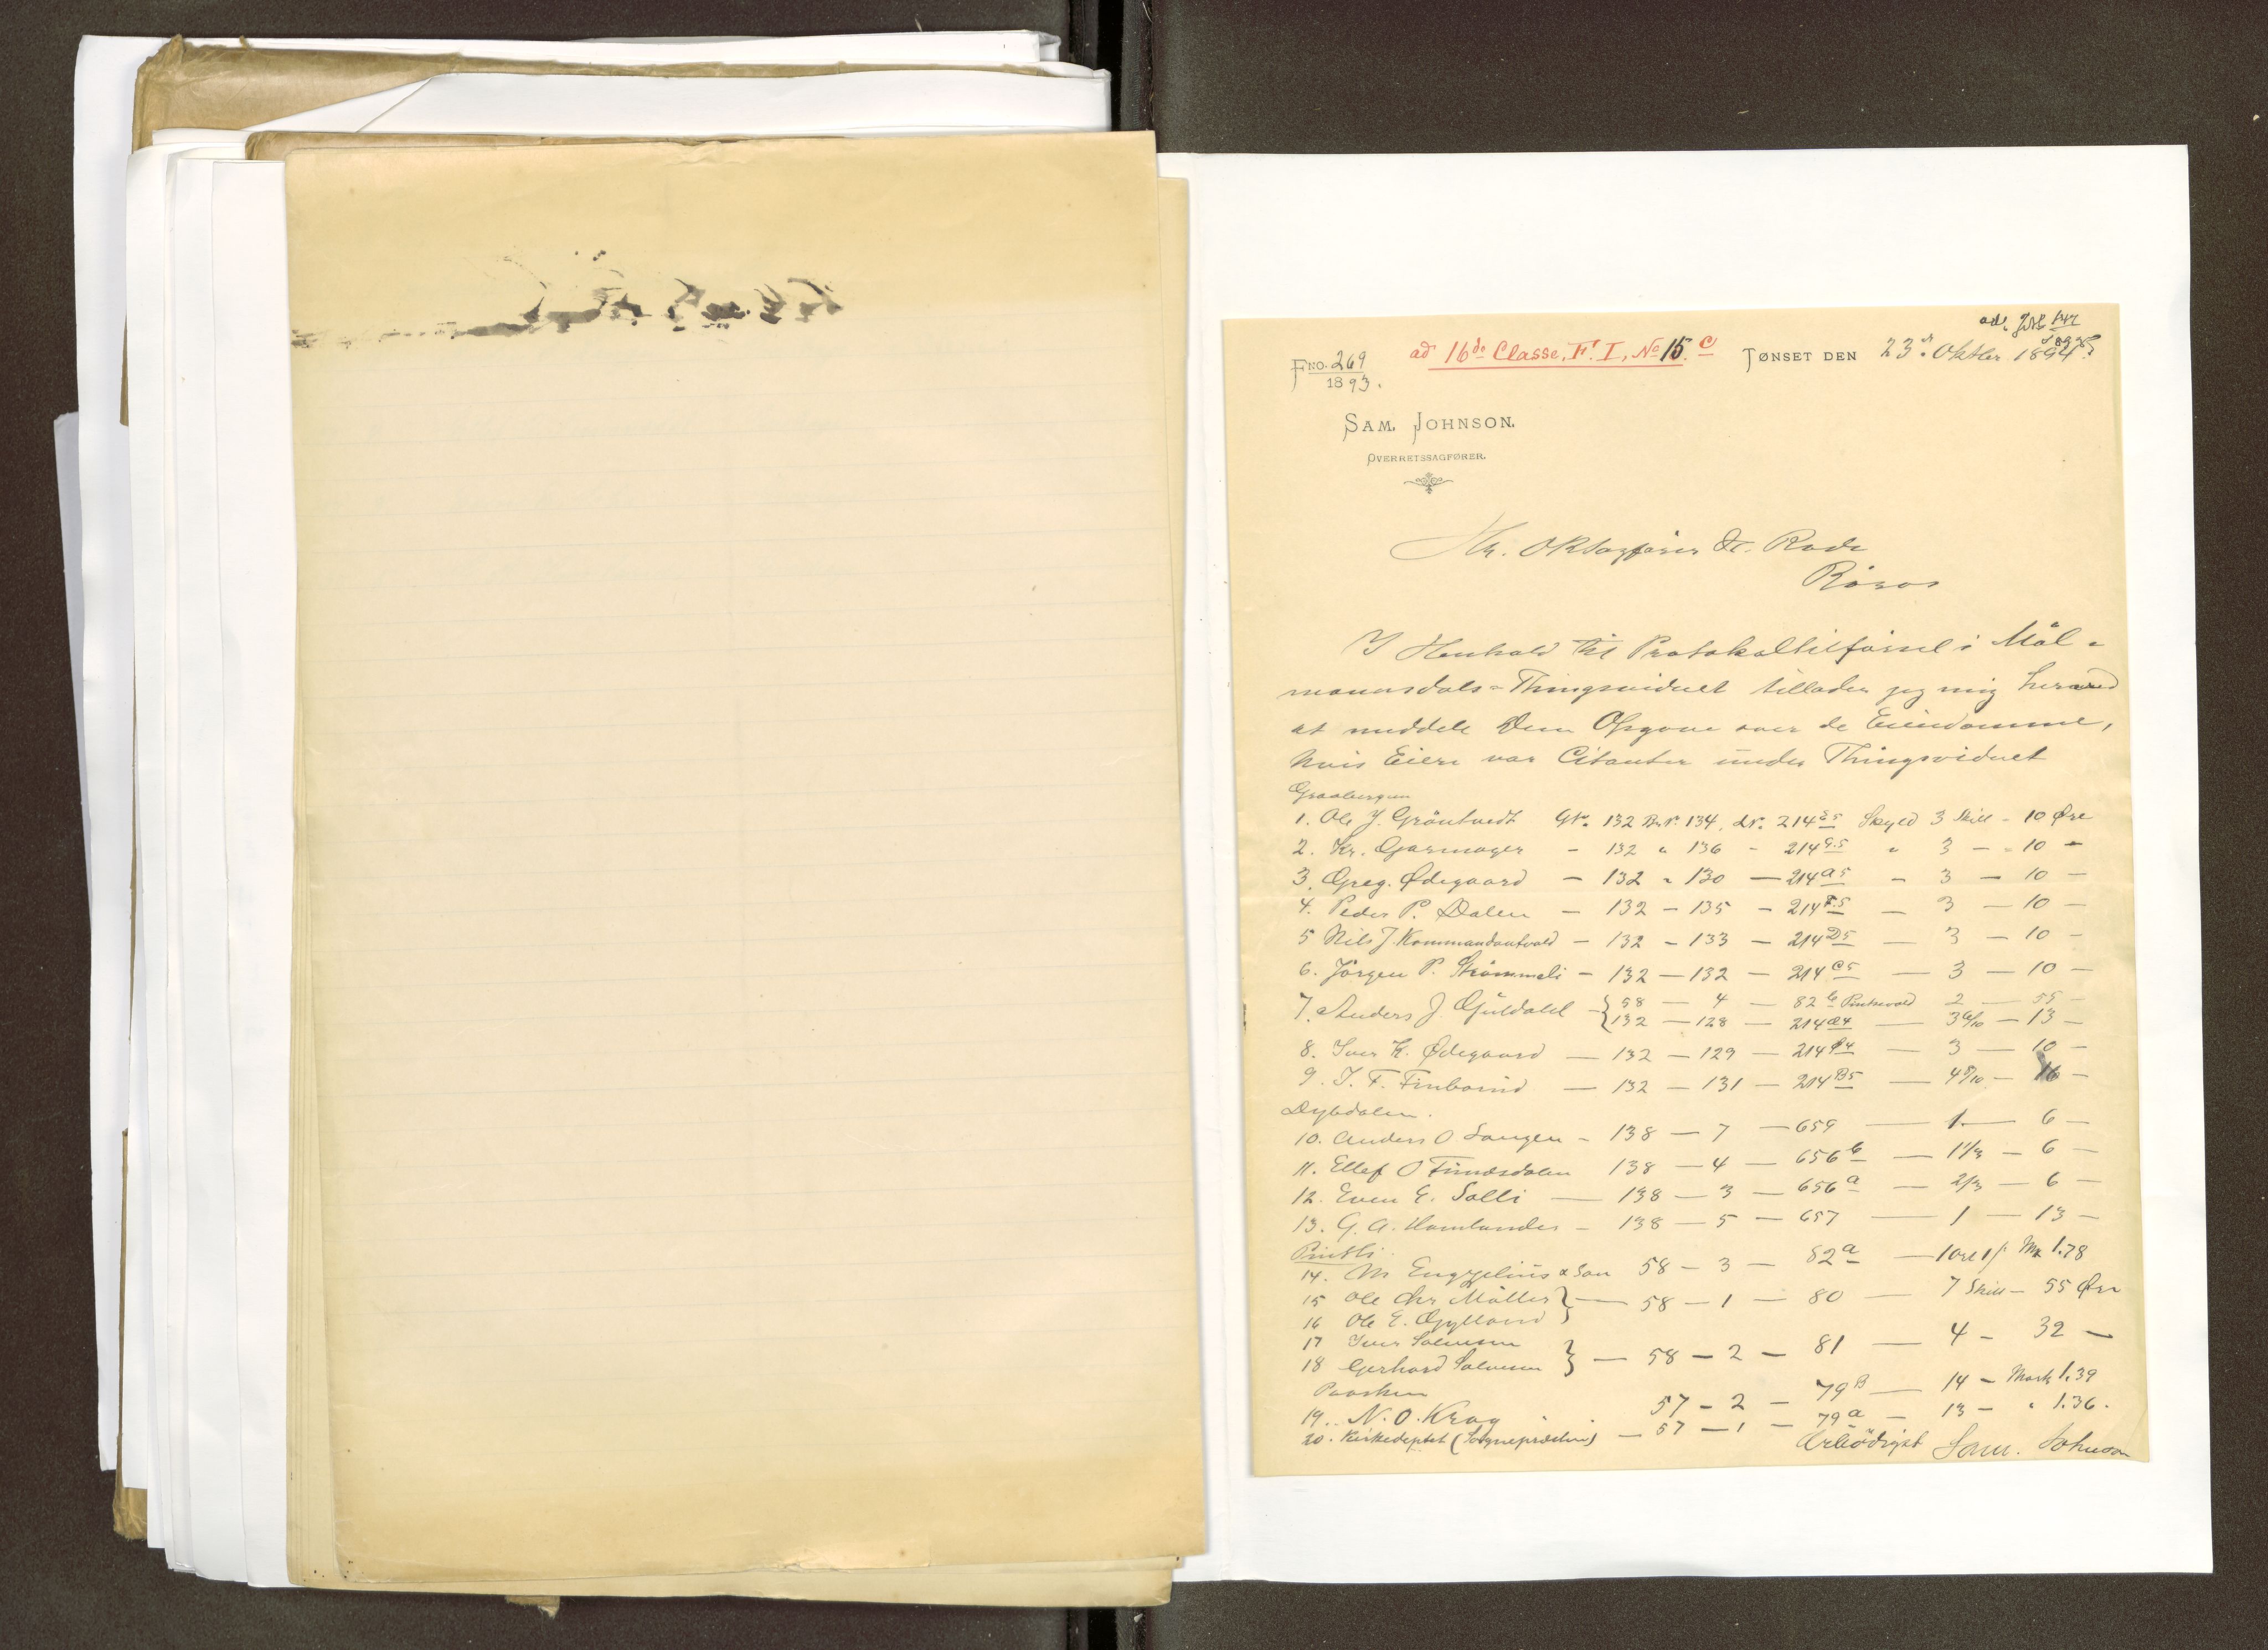 ad. JNo 147
1895
FNO. 269
1893.
ad 16de Classe, F. I, No 15.c
TØNSET DEN 23d Oktbr 1894.
SAM. JOHNSON.
OVERRETSSAGFØRER.
Hr. ORsagfører Rode
Røros
I Henhold til Protokoltilførsel i Mål-
mannsdals-Thingsvidnet tillader jeg mig herved
at meddele Dem Opgave over de Eiendomme,
hvis Eiere var Citanter under Thingsvidnet
Graabergun
1. Ole J. Gröntvedt GNr. 132 B.Nr. 134. LNr. 214 E5 Skyld 3 Skill - 10 Øre
2. Kr. Garmager - 132 " 136 - 214 G.5 " 3 - 10 -
3. Greg. Ødegaard - 132 " 130 - 214 A5 - 3 - 10 -
4. Peder P. Dalen - 132 - 135 - 214 F.5 - 3 - 10 -
5 Nils J. Kommandantvold - 132 - 133 - 214 D5 - 3 - 10 -
6. Jörgen P. Strömmeli - 132 - 132 - 214 C5 - 3 - 10 -
7. Anders J. Guldahl - { 58 - 4 - 82 b Pintsvold 2 - 55 -
132 - 128 - 214 - 3 6/10 - 13 -
8. Iver K. Ødegaard - 132 - 129 - 214 - 3 - 10 -
9. I. F. - 132 - 131 - 214 B5 - 4 8/10 - 16 -
Dybdalen.
10. Anders O. Langen - 138 - 7 - 659 - 1 - 6 -
11. Ellef O Finnesdalen 138 - 4 - 656 b - 1 1/3 - 6 -
12. Even E. Solli - 138 - 3 - 656 a - 2/3 - 6 -
13. G. A. Hamlander - 138 - 5 - 657 - 1 - 13 -
Pintsli.
14. M Engzelius & Søn 58 - 3 - 82 a - 1 ort 1 /. Mk 1.78
15 Ole Chr Möller } - 58 - 1 - 80 - 7 Skill - 55 Øre
16 Ole E. Gylland
17 Iver Salvesen } - 58 - 2 - 81 - 4 - 32 -
18 Gerhard Salvesen
Paasken
19. N. O. Krag 57 - 2 - 79 B - 14 - Mark 1.39
20. Kirkedeptet (Sognepræsten) - 57 - 1 - 79 a - 13 - " 1.36.
Ærbödigst Sam. Johnson